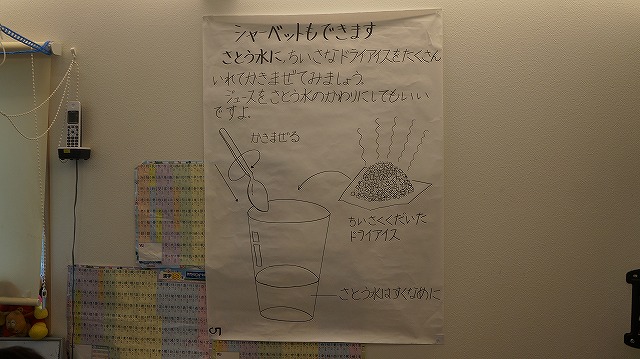 シャーベットもできます
さとう水に,ちいさなドライアイスをたくさん
いれてかきまぜてみましょう.
ジュースをさとう水のかわりにしてもいい
ですよ.
かきまぜる
ちいさくくだいた
ドライアイス
さとう水はすくなめに
5